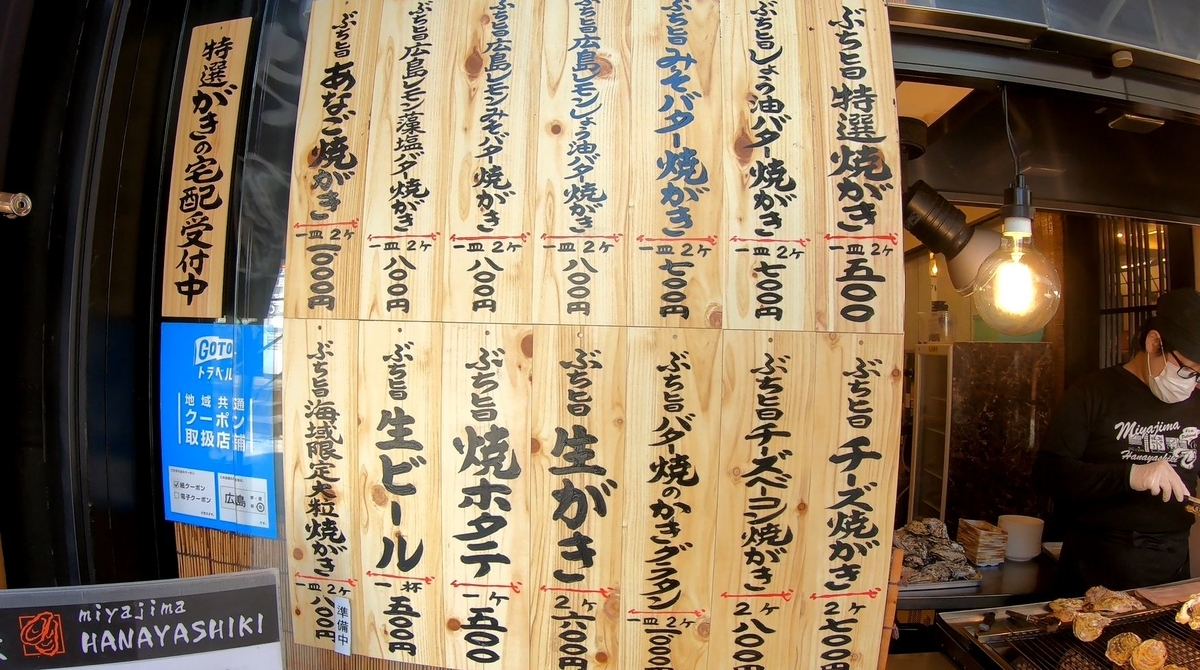 ぶち旨 特選焼がき
一皿 2ヶ
五〇〇
ぶち旨 しょう油バター焼がき
一皿 2ヶ
七〇〇円
ぶち旨 みそバター焼がき
一皿 2ヶ
七〇〇円
ぶち旨 広島レモンしょう油バター焼がき
一皿 2ヶ
八〇〇円
ぶち旨 広島レモンみそバター焼がき
一皿 2ヶ
八〇〇円
ぶち旨 広島レモン藻塩バター焼がき
一皿 2ヶ
八〇〇円
ぶち旨 あなご焼がき
一皿 2ヶ
一〇〇〇円
ぶち旨 チーズ焼がき
2ヶ
七〇〇円
ぶち旨 チーズベーコン焼がき
2ヶ
八〇〇円
ぶち旨 バター焼のかきグラタン
一皿 2ヶ
ぶち旨 生がき
2ヶ
六〇〇円
ぶち旨 焼ホタテ
一ヶ
五〇〇
ぶち旨 生ビール
一杯
五〇〇円
ぶち旨 海域限定大粒焼がき
一皿 2ヶ
八〇〇円
準備中
特選がきの宅配受付中
GOTO
トラベル
地域共通
クーポン
取扱店舗
紙クーポン
電子クーポン
広島
miyajima
HANAYASHIKI
Miyajima
Hanayashiki